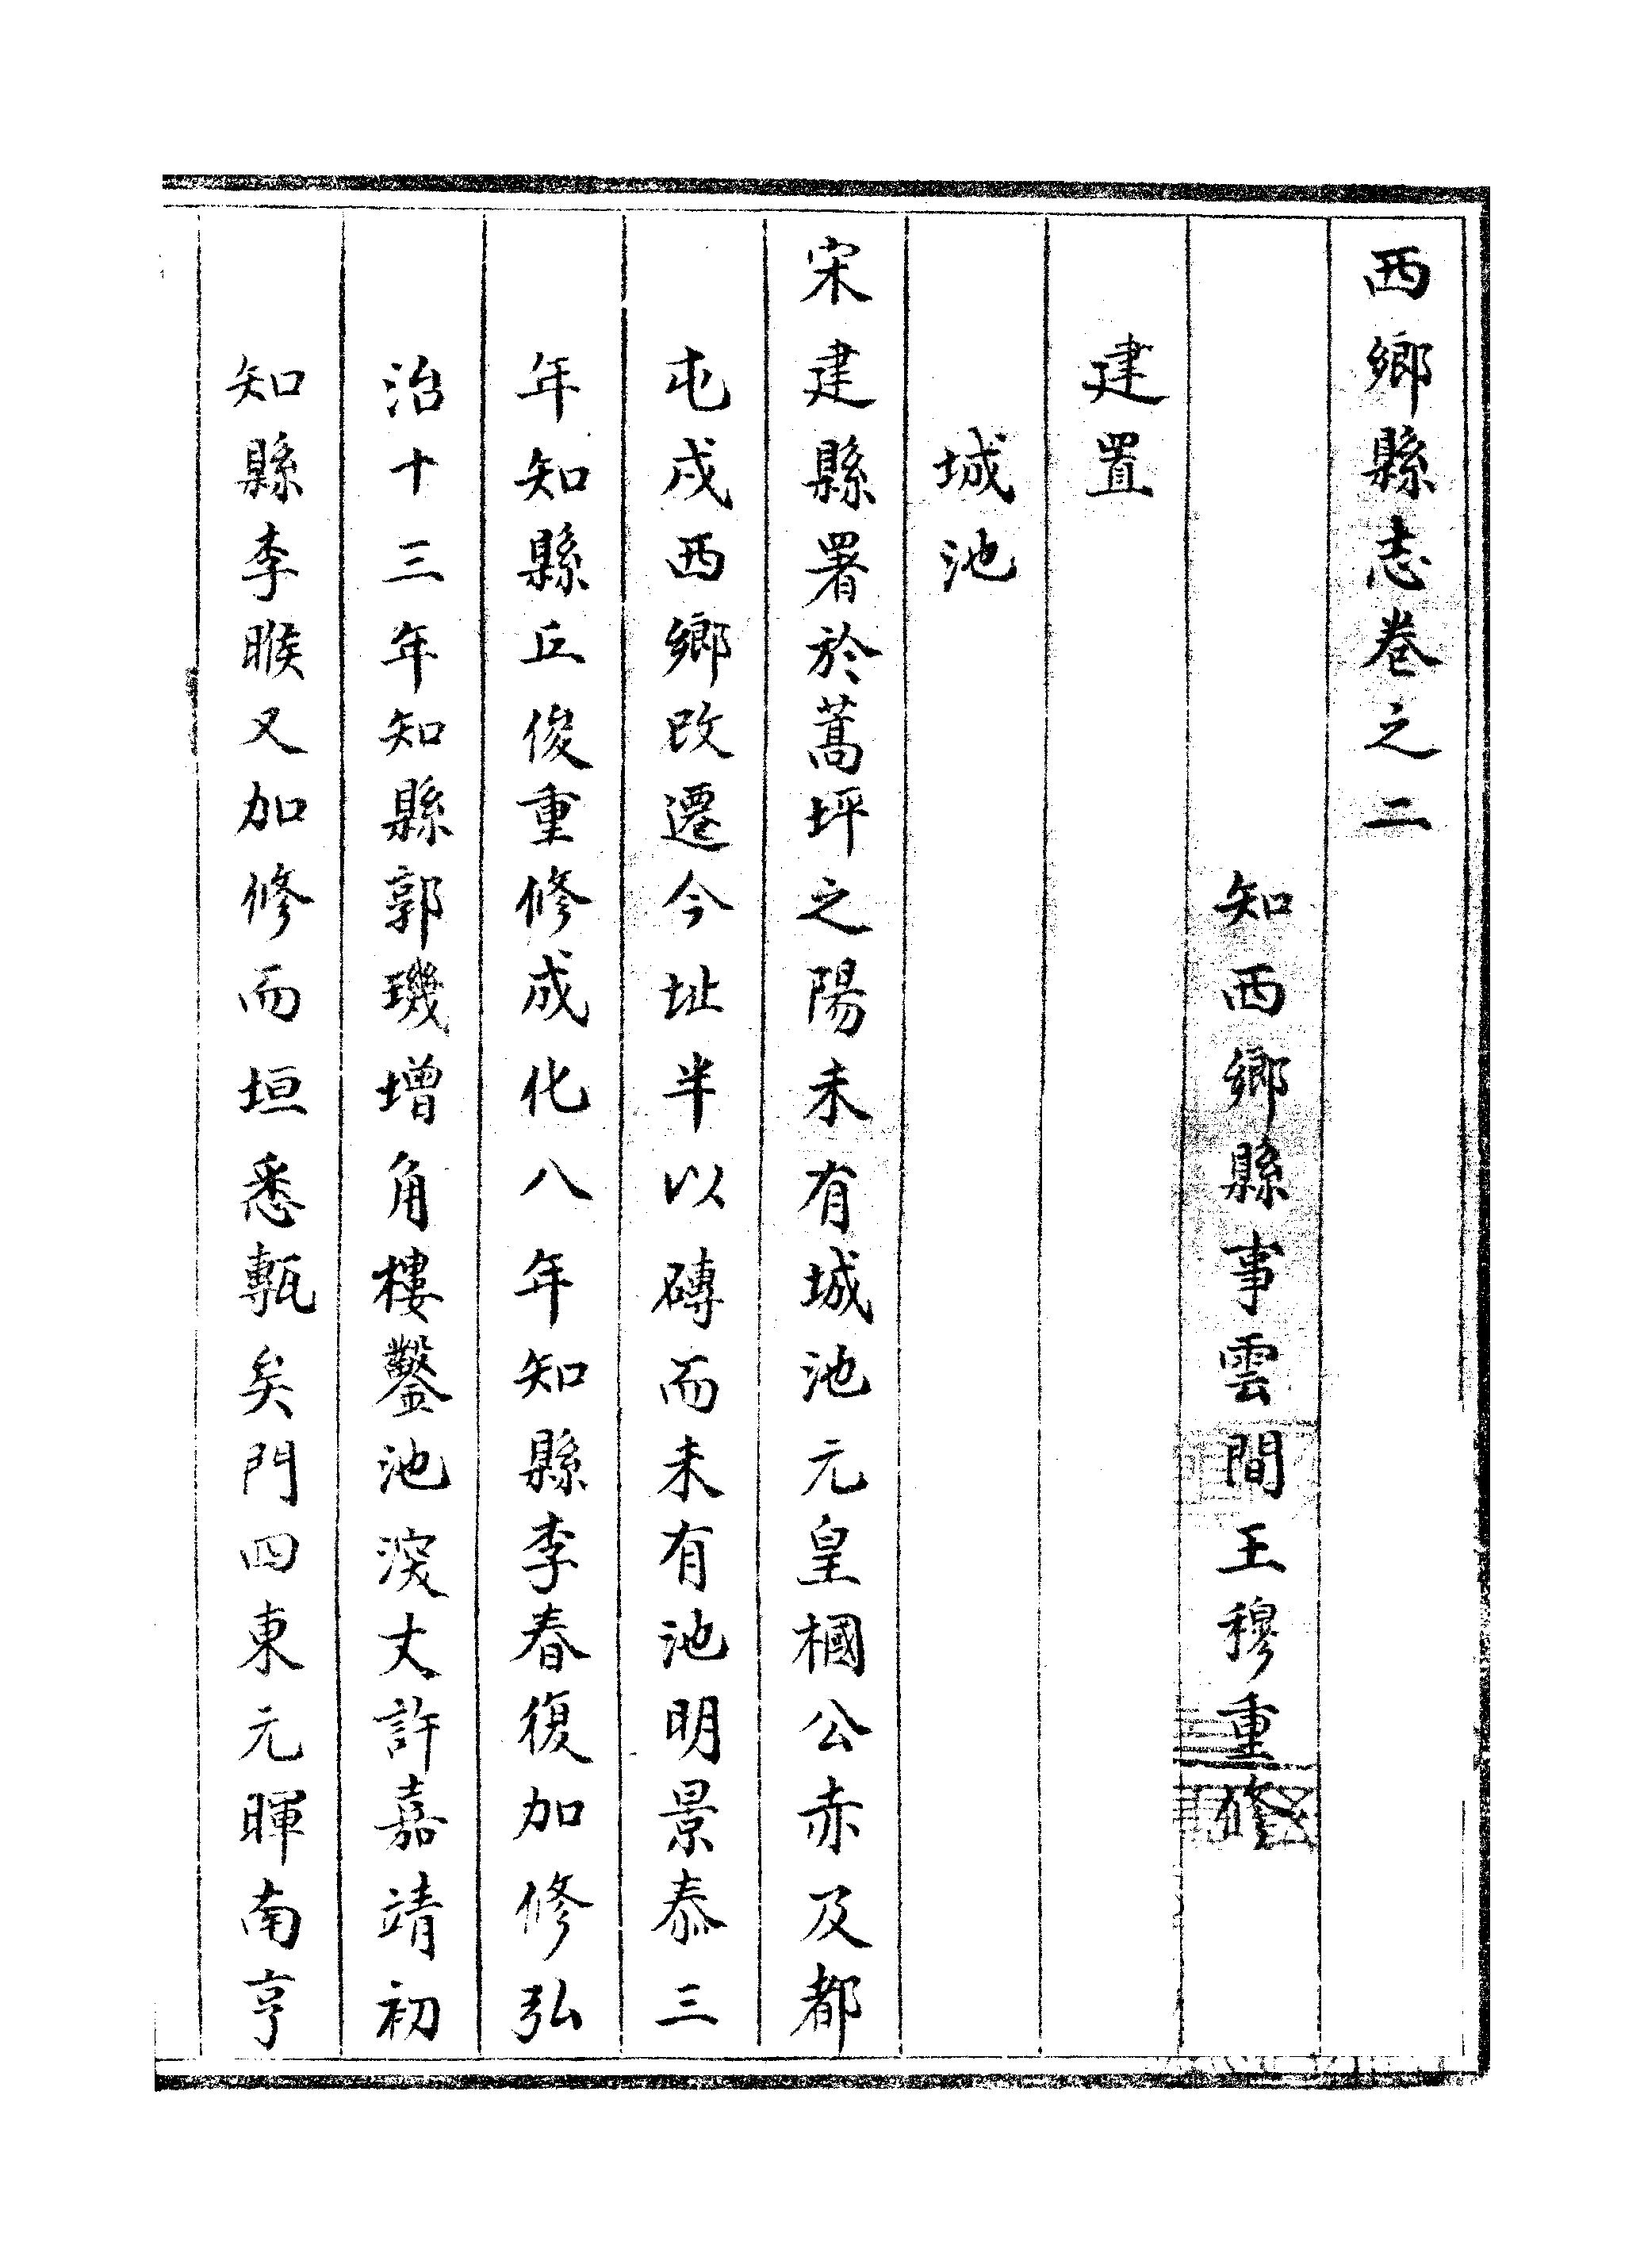 西鄉縣志卷之二
知西鄉縣事雲間王穆重修
建置
城池
宋建縣署於蒿坪之陽未有城池元皇槶公赤及都
屯戍西鄉改遷今址半以磚而未有池明景泰三
年知縣丘俊重修成化八年知縣李春復加修弘
治十三年知縣郭璣增角樓鑿池深丈許嘉靖初
知縣李㬋又加修而垣悉甎矣門四東元暉南亨